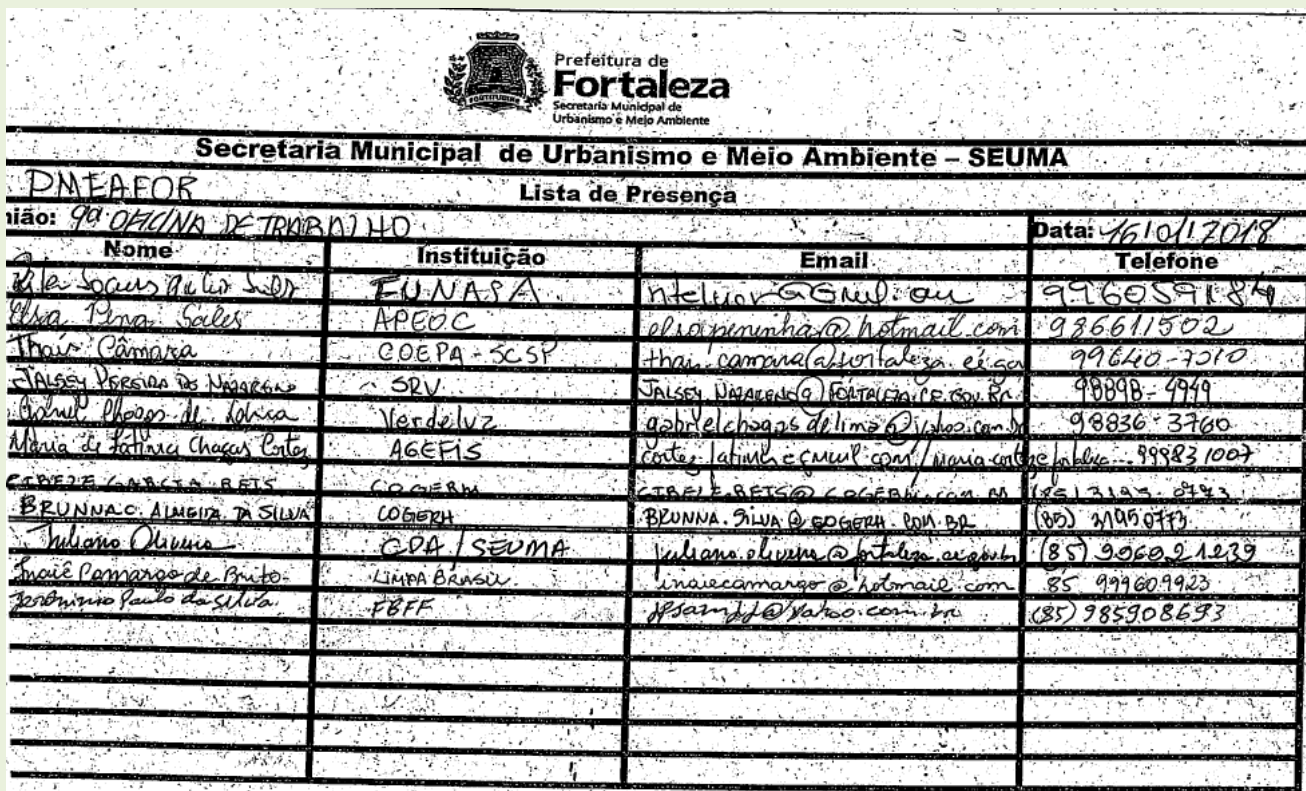 Prefeitura de
Fortaleza
Secretaria Municipal de
Urbanismo e Meio Ambiente
Secretaria Municipal de Urbanismo e Meio Ambiente – SEUMA
PMEAFOR Lista de Presença
nião: 9ª OFICINA DE TRABALHO Data: 16/01/2018
Nome Instituição Email Telefone
FUNASA 996059184
Elsa Pena Sales APEOC elsapeninha@hotmail.com 986611502
Thaís Câmara COEPA - SCSP 99640-7010
JALSEY PEREIRA DO NAZARENO SRV JALSEY.NAZARENO@FORTALEZA.CE.GOV.BR 98898-4949
Gabriel Chagas de Lima Verdeluz gabrielchagasdelima@yahoo.com.br 98836-3760
Maria de Fatima Chagas Cortez AGEFIS 999831007
CIBELE GARCIA REIS COGERH CIBELE.REIS@COGERH.COM.BR (85) 3195 0773
BRUNNA C. ALMEIDA DA SILVA COGERH BRUNNA.SILVA@COGERH.COM.BR (85) 31950773
Juliano Oliveira CPA / SEUMA juliano.oliveira@fortaleza.ce.gov.br (85) 996921239
Inaiê Camargo de Brito LIMPA BRASIL inaiecamargo@hotmail.com 85 999609923
Jerônimo Paulo da Silva FBFF (85) 985908693